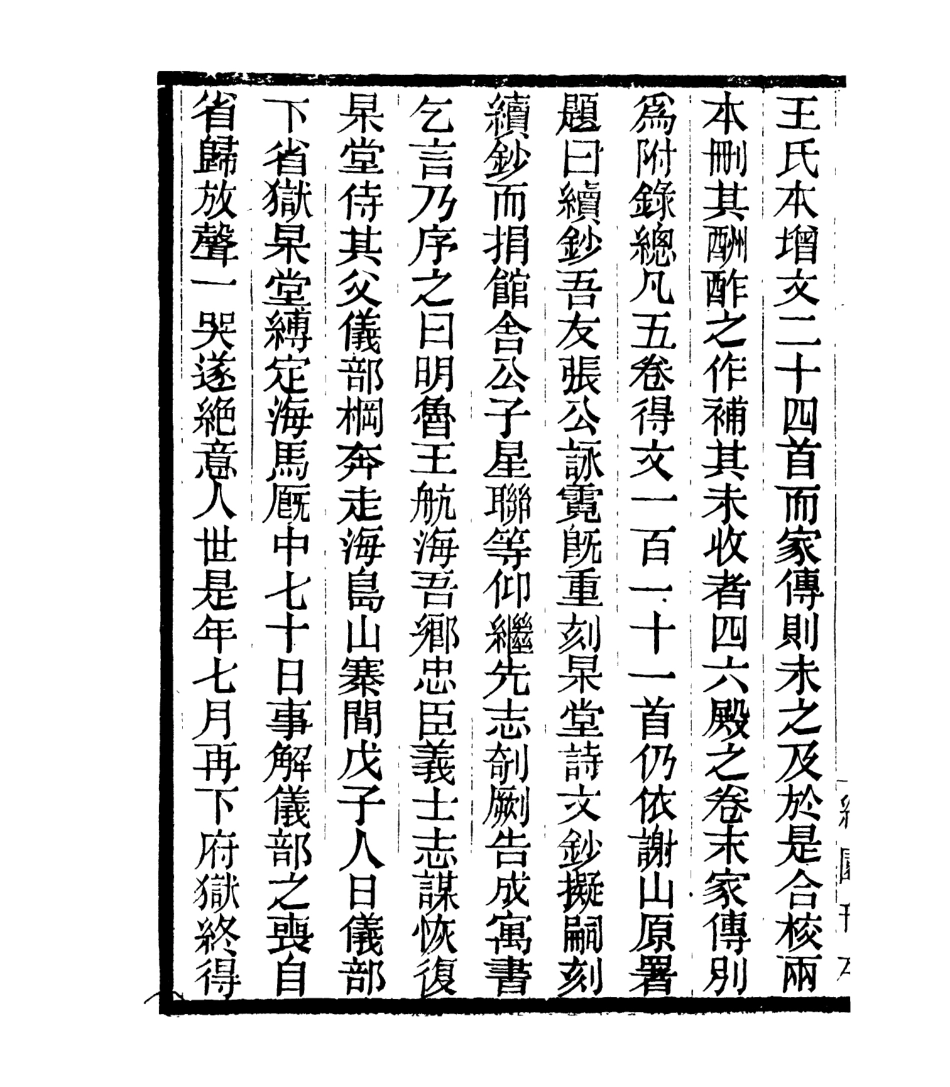 王氏本增文二十四首而家傳則未之及於是合校兩
本刪其酬酢之作補其未收者四六殿之卷末家傳別
爲附錄總凡五卷得文一百一十一首仍依謝山原署
題曰續鈔吾友張公詠霓旣重刻杲堂詩文鈔擬嗣刻
續鈔而捐館舍公子星聯等仰繼先志剞劂告成寓書
乞言乃序之曰明魯王航海吾鄉忠臣義士志謀恢復
杲堂侍其父儀部棡奔走海島山寨間戊子人日儀部
下省獄杲堂縛定海馬廐中七十日事解儀部之喪自
省歸放聲一哭遂絶意人世是年七月再下府獄終得